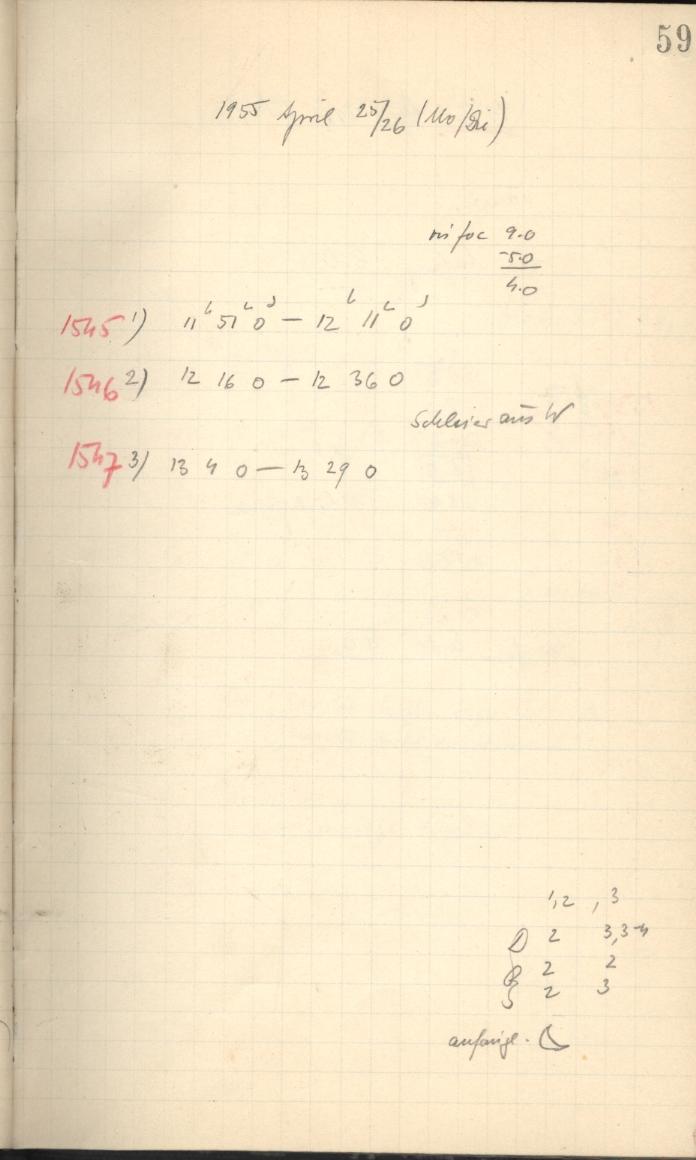 59
1955 April 25/26 (Mo/Di)
foc 9.0
5.0
4.0
1545 1) 11 51 0 — 12 11 0
1546 2) 12 16 0 — 12 36 0
Schleier aus W
1547 3) 13 4 0 — 13 29 0
1,2 , 3
D 2 3,3-4
R 2 2
S 2 3
anfangs. ☾